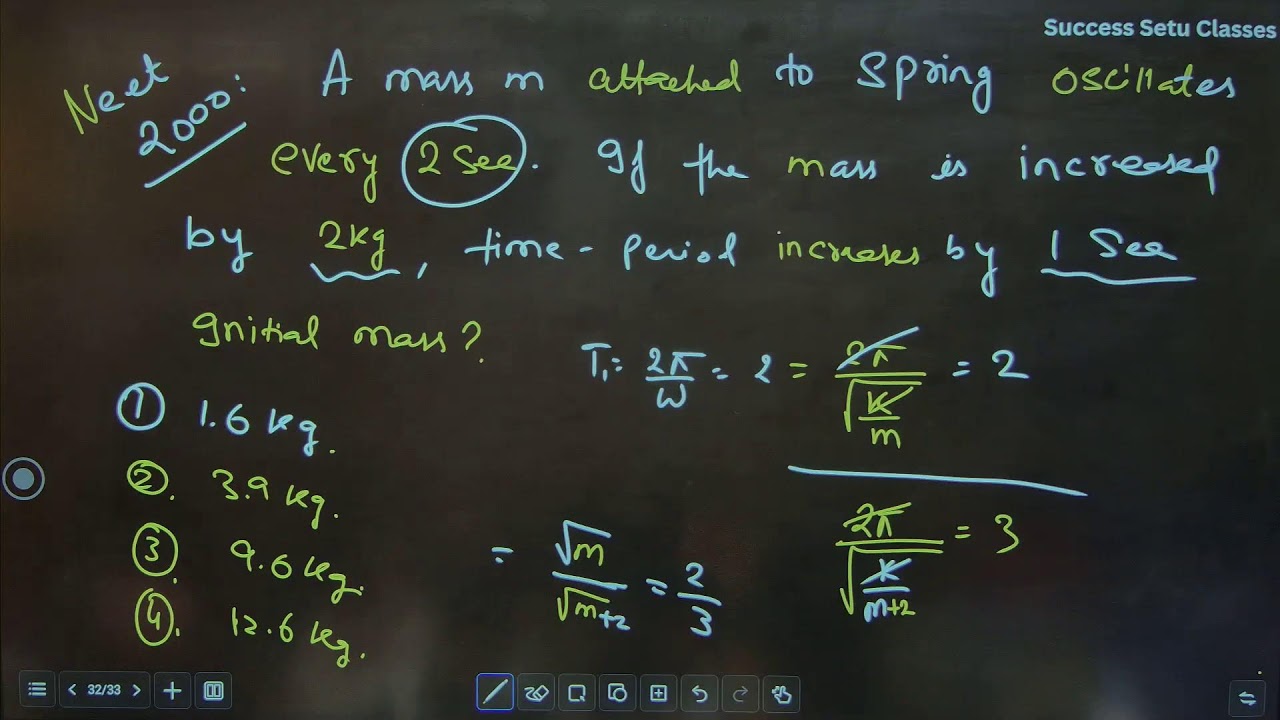 Success Setu Classes
Neet 2000: A mass m attached to Spring oscillates
every 2 Sec. If the mass is increased
by 2kg, time-period increases by 1 Sec
Initial mass?
T₁ = 2π/ω = 2 = 2π/√(K/m) = 2
① 1.6 kg.
②. 3.9 kg.
③ 9.6 kg.
④. 12.6 kg.
2π/√(K/m+2) = 3
= √m/√m+2 = 2/3
32/33